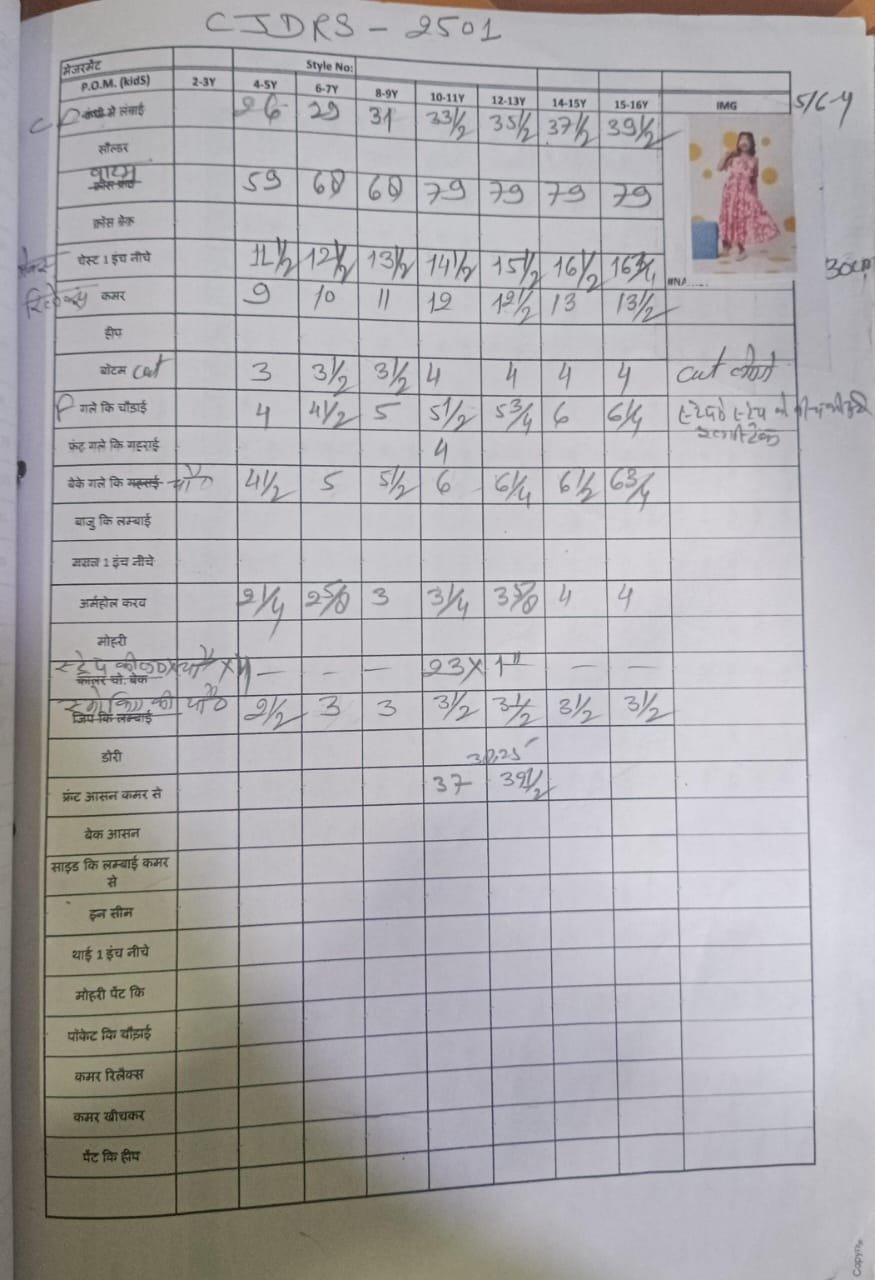 CJDRS - 2501
मेजरमेंट Style No:
P.O.M. (kidS) 2-3Y 4-5Y 6-7Y 8-9Y 10-11Y 12-13Y 14-15Y 15-16Y IMG 5/6-Y
से लंबाई 26 29 31 33 1/2 35 1/2 37 1/2 39 1/2
सोल्डर
59 68 68 79 79 79 79
क्रॉस बेक
चेस्ट 1 इंच नीचे 11 1/2 12 1/2 13 1/2 14 1/2 15 1/2 16 1/2 16 3/4
कमर 9 10 11 12 12 1/2 13 13 1/2
हीप
बोटम cut 3 3 1/2 3 1/2 4 4 4 4 cut
गले कि चौडाई 4 4 1/2 5 5 1/2 5 3/4 6 6 1/4
फ्रंट गले कि गहराई 4
बेके गले कि गहराई चौ० 4 1/2 5 5 1/2 6 6 1/4 6 1/2 6 3/4
बाजु कि लम्बाई
मसल 1 इंच नीचे
अर्महोल करव 2 1/4 2 5/8 3 3 1/4 3 5/8 4 4
मोहरी
कालर चो. बेक — — — 23 x 1" — —
जिप कि लम्बाई 2 1/2 3 3 3 1/2 3 1/2 3 1/2 3 1/2
डोरी
फ्रंट आसन कमर से 37 39 1/2
बेक आसन
साइड कि लम्बाई कमर
से
इन सीम
थाई 1 इंच नीचे
मोहरी पेंट कि
पॉकेट कि चौड़ाई
कमर रिलैक्स
कमर खीचकर
पेंट कि हीप